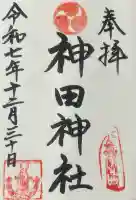 奉拝
神田神社
令和七年十二月三十日